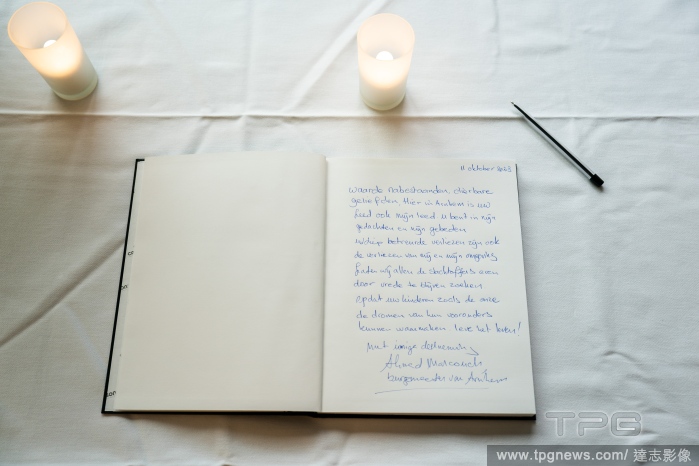 11 oktober 2023
Waarde nabestaanden, dierbare
geliefden, Hier in Arnhem is uw
leed ook mijn leed. U bent in mijn
gedachten en mijn gebeden
betreurde verliezen zijn ook
de verliezen van mij en mijn
laten wij allen de slachtoffers eren
door vrede te blijven zoeken
opdat uw kinderen zoals de onze
de dromen van hun voorouders
kunnen waarmaken. Leve het leven!
Met innige deelneming
Ahmed Marcouch
Burgemeester van Arnhem
TPG
www.tpgnews.com/ 達志影像